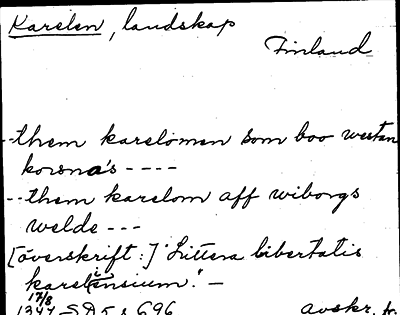 Karelen, landskap
Finland
--them karelomen som boo westan
korsnäs ----
--them karelom aff wiborgs
welde ---
[överskrift:] "Littera libertatis
kareliensium." —
17/8
1347 SD 5 s 696 avskr. fr.